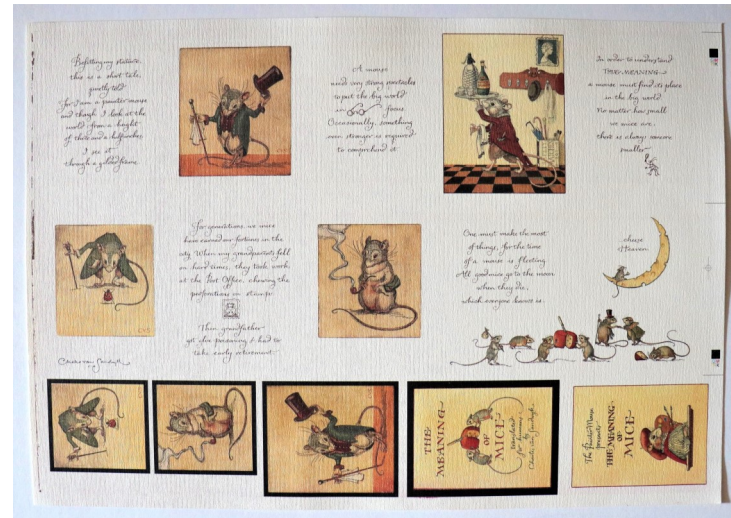 Befitting my stature,
this is a short tale,
quietly told
for I am a painter-mouse
and though I look at the
world from a height
of three and a half inches
I see it
through a gilded frame.
A mouse
needs very strong spectacles
to put the big world
in focus.
Occasionally, something
even stronger is required
to comprehend it.
In order to understand
THE MEANING
a mouse must find its place
in the big world.
No matter how small
we mice are,
there is always someone
smaller
For generations we mice
have earned our fortune in the
city. When my grandparents fell
on hard times, they took work
at the Post Office, chewing the
perforations on stamps.
Then grandfather
got glue poisoning & had to
take early retirement.
One must make the most
of things, for the time
of a mouse is fleeting.
All good mice go to the moon
when they die,
which everyone knows is
cheese
Heaven.
THE
MEANING
OF
MICE
translated
for humans
by
Charles van Sandwyk
The Painter-Mouse
presents
THE MEANING
OF
MICE
Charles van Sandwyk